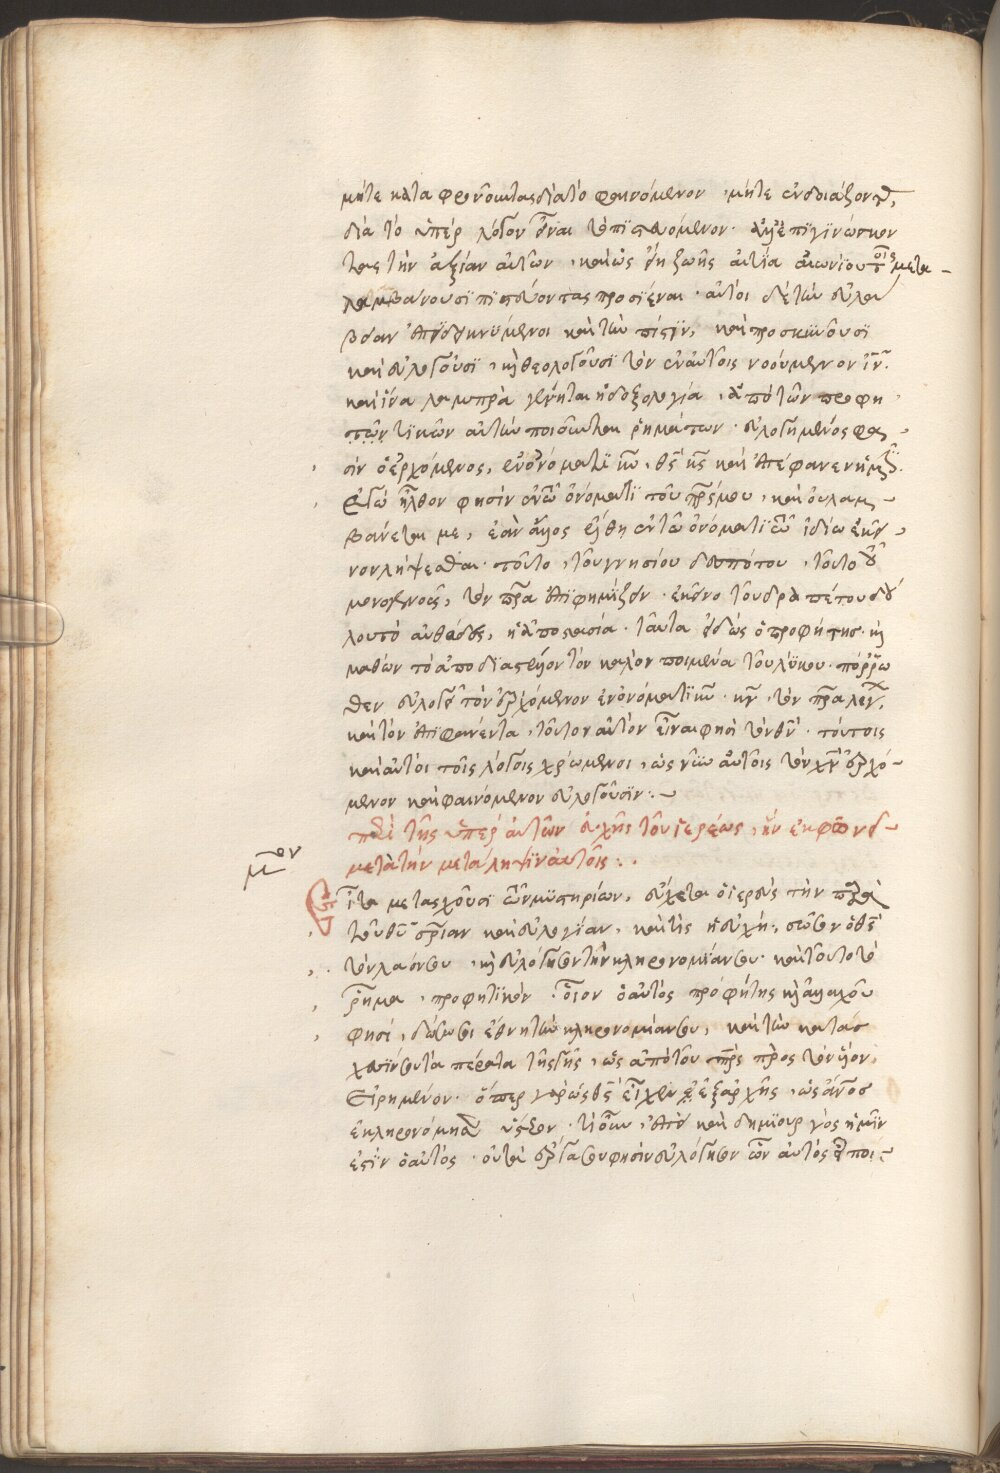 μήτε καταφρονοῦντας διὰ τὸ φαινόμενον, μήτε ἐνδοιάζοντ(ας),
διὰ τὸ ὑπὲρ λόγον εἶναι τὸ πιστευόμενον· ἀλλ' ἐπιγινώσκον
τας τὴν ἀξίαν αὐτῶν, καὶ ὡς ἔστι ζωῆς αἰτία αἰωνίου τοῖς μετα-
λαμβάνουσι πιστεύοντας προσιέναι. αὐτοὶ δὲ τὴν εὐλά
βειαν ἐπιδεικνύμενοι καὶ τὴν πίστιν, καὶ προσκυνοῦσι
καὶ εὐλογοῦσι, κ(αὶ) θεολογοῦσι τὸν ἐν αὐτοῖς νοούμενον ἰν.
καὶ ἵνα λαμπρὰ γένηται ἡ δοξολογία, ἀπὸ τῶν προφη
τικῶν αὐτὴν ποιοῦνται ῥημάτων. εὐλογημένος φα
σὶν ὁ ἐρχόμενος, ἐν ὀνόματι κυ, θς κς καὶ ἐπέφανεν ἡμῖν.
ἐγὼ ἦλθον φησὶν ἐν τῷ ὀνόματι τοῦ πρς μου, καὶ οὐ λαμ-
βάνετέ με, ἐὰν ἄλλος ἔλθῃ ἐν τῷ ὀνόματι τῷ ἰδίῳ ἐκεῖ
νον λήψεσθε. τοῦτο, τοῦ γνησίου δεσπότου, τοῦτο τοῦ
μονογενοῦς, τὸν πρα ἐπιφημίζειν. ἐκεῖνο τοῦ δραπέτου δού
λου τὸ αὔθαδες, ἡ ἀποστασία. ταῦτα εἰδὼς ὁ προφήτης. κ(αὶ)
μαθὼν τὸ ἀποδιαστέλλον τὸν καλὸν ποιμένα τοῦ λύκου. πόρρω
θεν εὐλογεῖ τὸν ἐρχόμενον ἐν ὀνόματι κυ. κν, τὸν πρα λέγ(ων).
καὶ τὸν ἐπιφανέντα, τοῦτον αὐτὸν εἶναι φησὶ τὸν θν. τούτοις
καὶ αὐτοὶ τοῖς λόγοις χρώμενοι, ὡς νῦν αὐτοῖς τὸν χν ἐρχό-
μενον καὶ φαινόμενον εὐλογοῦσιν:-
περὶ τῆς ὑπὲρ αὐτῶν εὐχῆς τοῦ ἱερέως, ἣν ἐκφωνεῖ
μετὰ τὴν μετάληψιν αὐτοῖς:.
μον
εἶτα μετασχοῦσι τῶν μυστηρίων, εὔχεται ὁ ἱερεὺς τὴν παρὰ
τοῦ θυ σρίαν καὶ εὐλογίαν, καὶ τίς ἡ εὐχή; σῶσον ὁ θς
τὸν λαόν σου, κ(αὶ) εὐλόγησον τὴν κληρονομίαν σου. καὶ τοῦτο τὸ
ῥῆμα, προφητικόν. οἷον ὁ αὐτὸς προφήτης κ(αὶ) ἀλλαχοῦ
φησί, δώσω σοι ἔθνη τὴν κληρονομίαν σου, καὶ τὴν κατάσ
χεσίν σου τὰ πέρατα τῆς γῆς, ὡς ἀπὸ τοῦ πρς πρὸς τὸν υἱόν
εἰρημένον. ὅπερ γὰρ ὡς θς εἶχεν ἐξαρχῆς, ὡς ἄνος
ἐκληρονόμησεν ὕστερον.
ἐστιν ὁ αὐτός.